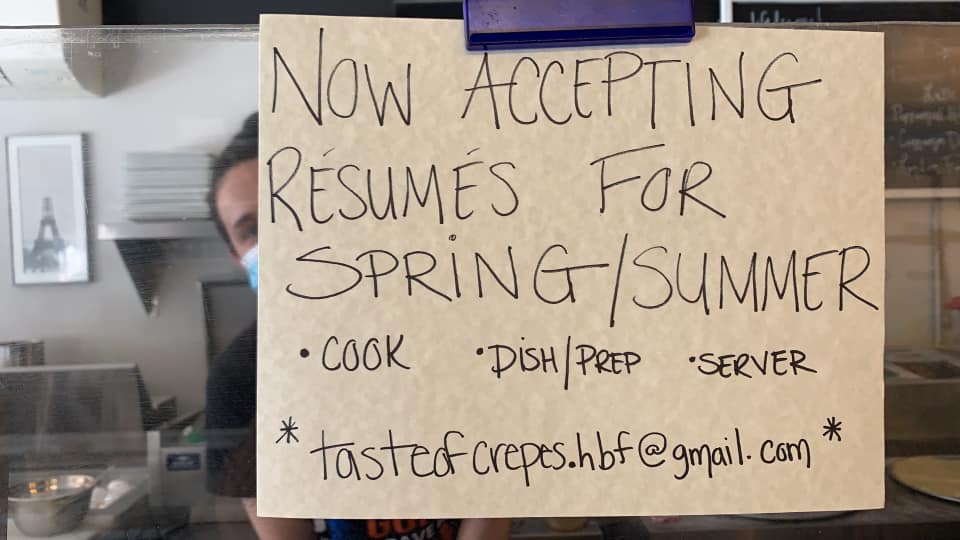 NOW ACCEPTING
RÉSUMÉS FOR
SPRING/SUMMER
• COOK • DISH/PREP • SERVER
* tasteofcrepes.hbf@gmail.com *